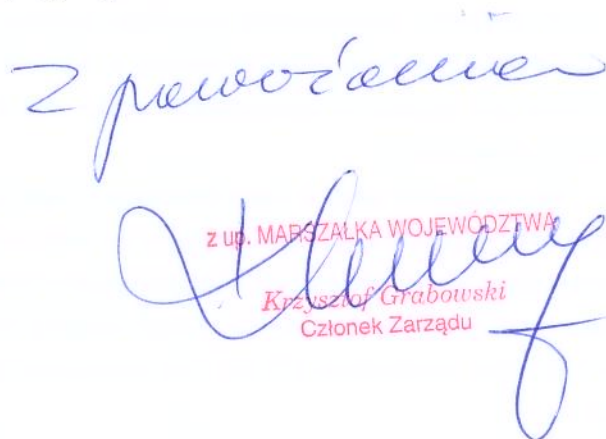 Z poważaniem
z up. MARSZAŁKA WOJEWÓDZTWA
Krzysztof Grabowski
Członek Zarządu